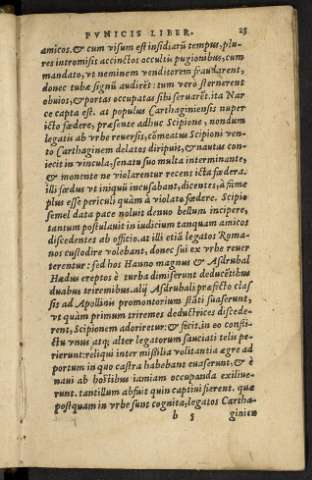 PVNICIS LIBER. 25
amicos. & cum visum est insidiarũ tempus, plu-
res intromisis accinctos occultis pugionibus, cum
mandato, vt neminem venditorem fraudarent,
donec tubæ signũ audirẽt: tum vero sternerent
obuios, & portas occupatas sibi seruarẽt. ita Nar
ce capta est. at populus Carthaginiensis nuper
icto fœdere, præsente adhuc Scipione, nondum
legatis ab vrbe reuersis, cõmeatus Scipioni ven-
to Carthaginem delatos diripuit, & nautas con-
iecit in vincula, senatu suo multa interminante,
& monente ne violarentur recens icta fœdera.
illi fœdus vt iniquũ incusabant, dicentes, à fame
plus esse periculi quàm à violato fœdere. Scipio
semel data pace noluit denuo bellum incipere,
tantum postulauit in iudicium tanquam amicos
discedentes ab officio. at illi etiã legatos Roma-
nos custodire volebant, donec sui ex vrbe reuer
terentur: sed hos Hanno magnus & Asdrubal
Hœdus ereptos è turba dimiserunt deducẽtibus
duabus triremibus. alij Asdrubali præfecto clas-
sis ad Apollinis promontorium stãti suaserunt,
vt quàm primum triremes deductrices discede-
rent, Scipionem adoriretur: & fecit. in eo conflic-
ctu vnus atq; alter legatorum sauciati telis pe-
rierunt: reliqui inter missilia volitantia ægre ad
portum in quo castra habebant euaserunt, & è
naui ab hostibus iamiam occupanda exiliue-
runt. tantillum abfuit quin captiui fierent. quæ
postquam in vrbe sunt cognita, legatos Cartha-
b 5 ginien